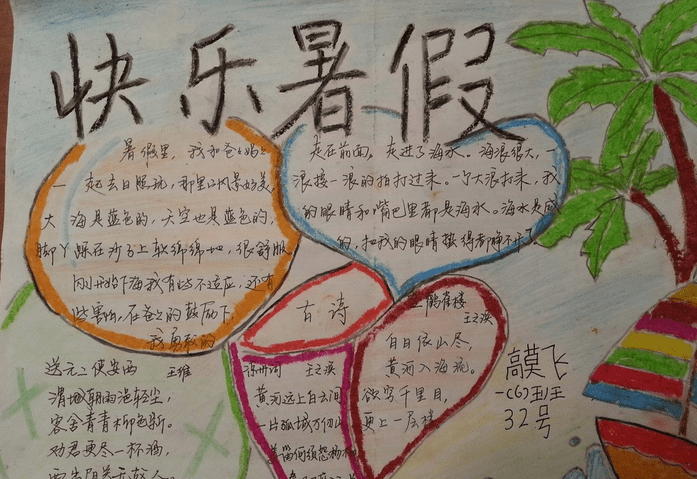 快乐暑假
暑假里，我和爸爸妈妈
一起去日照玩，那里的风景好美，
大海是蓝色的，天空也是蓝色的，
脚丫踩在沙子上软绵绵地，很舒服
刚开始下海我有些不适应，还有
些害怕，在爸爸的鼓励下，
我勇敢的
走在前面，走进了海水。海浪很大，一
浪接一浪的拍打过来。一个大浪打来，我
的眼睛和嘴巴里都是海水。海水是咸
的，把我的眼睛蛰得都睁不开了。
古诗
登鹳雀楼
王之涣
白日依山尽，
黄河入海流。
欲穷千里目，
更上一层楼
送元二使安西
王维
渭城朝雨浥轻尘，
客舍青青柳色新。
劝君更尽一杯酒，
西出阳关无故人。
凉州词 王之涣
黄河远上白云间
一片孤城万仞山
羌笛何须怨杨柳
高莫飞
一(6)班
32号